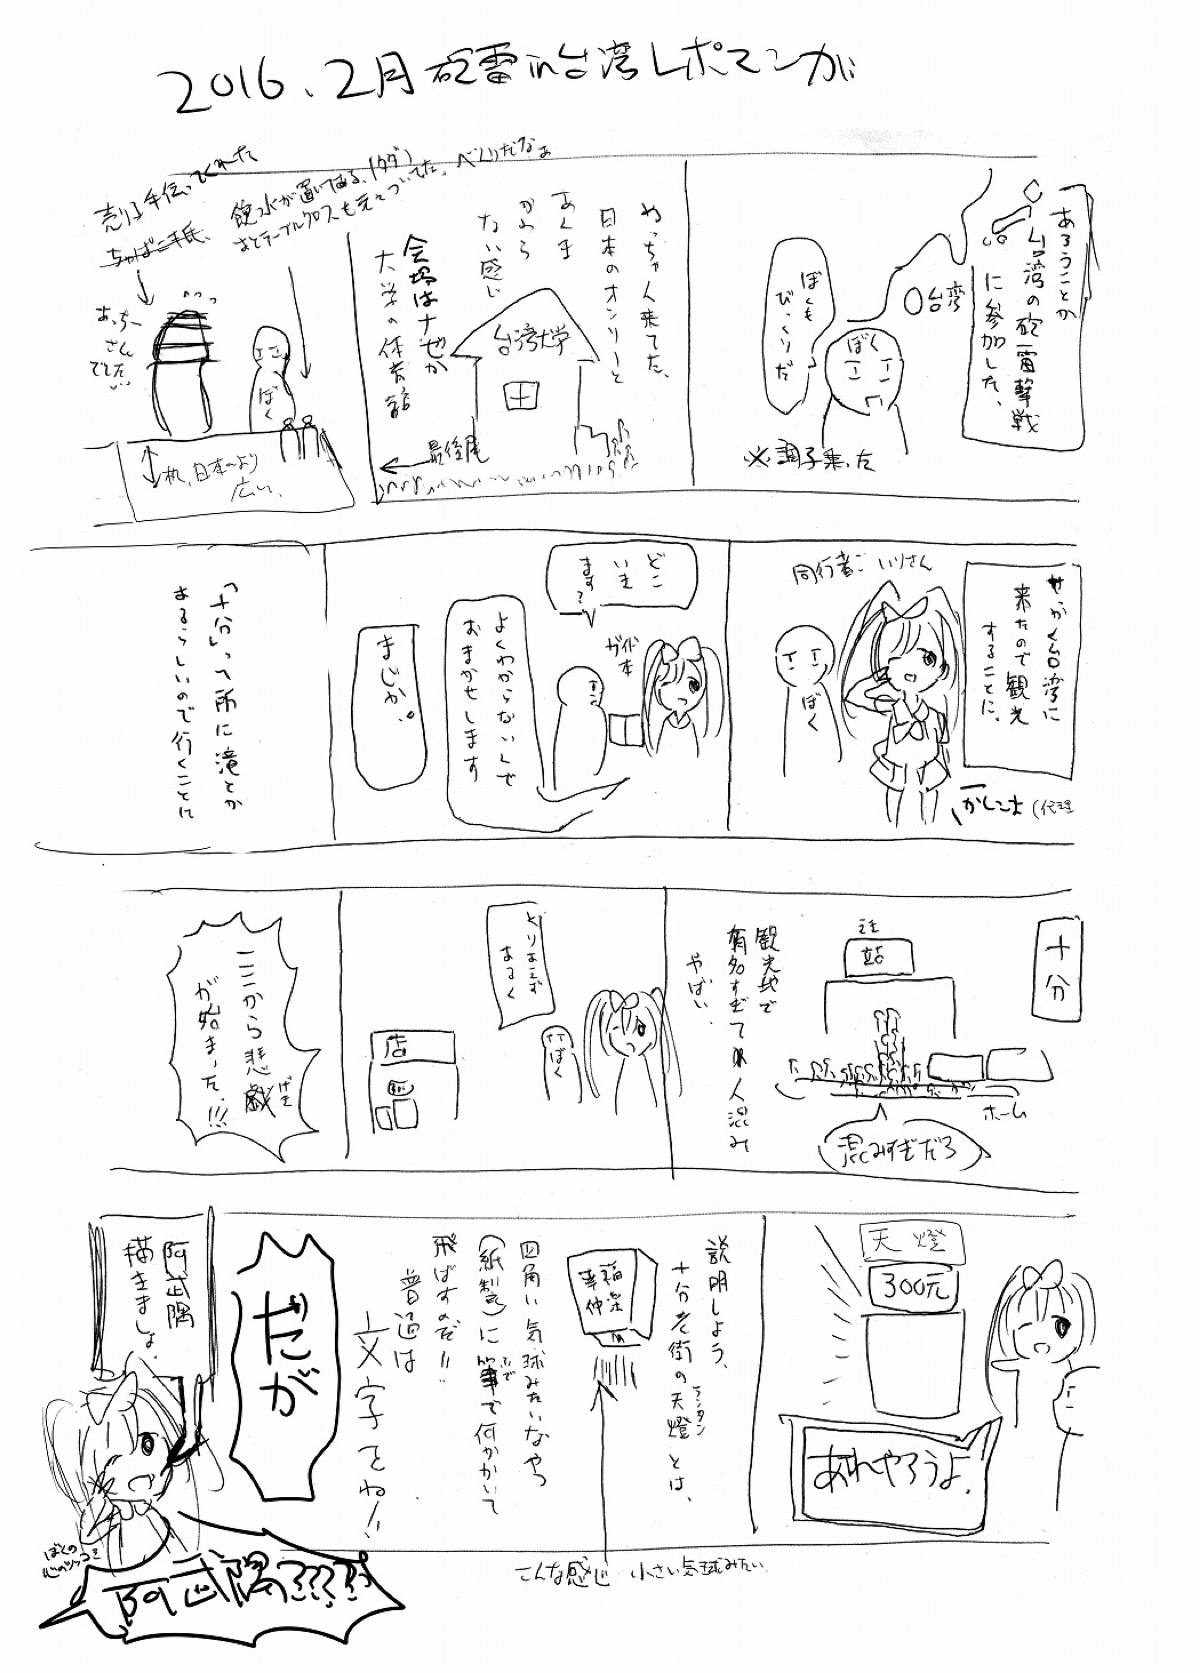 2016.2月砲雷in台湾レポマンガ
あろうことか
台湾の砲雷撃戦
に参加した、
台湾
ぼくも
びっくりだ
ぼく
※調子乗った
めっちゃ人来てた、
日本のオンリーと
あんま
かわら
ない感じ
台湾大学
会場はナゼか
大学の体育館
最後尾
飲水が置いてある、(タダ)
あとテーブルクロスも元々ついてた、べんりだなぁ
売り子手伝ってくれた
あっちー
さん
でした
ぼく
机、日本より
広い、
せっかく台湾に
来たので観光
することに、
同行者:いりさん
ぼく
かしこま(代理
どこ
いき
ます?
ガイド
本
よくわからないんで
おまかせします
まじか。
「十分」って所に滝とか
あるらしいので行くことに
十分
站
ホーム
混みすぎだろ
観光地で
有名すぎて人混み
やばい、
とりあえず
あるく
ぼく
店
ここから悲戯げき
が始まった、!!!
天燈
300元
あれやろうよ。
説明しよう、
十分老街の天燈ランタンとは、
四角い気球みたいなやつ
(紙製)に筆ふでで何かかいて
飛ばすのだ!!
普通は
文字でね!!
こんな感じ 小さい気球みたい
だが
阿武隈
描きましょ。
ぼくの
心のツッコミ
阿武隈????